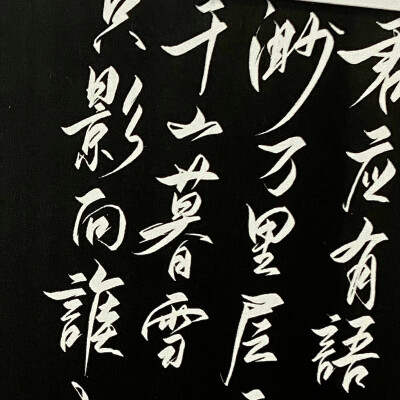 君应有語
渺万里层
千山暮雪
只影向誰